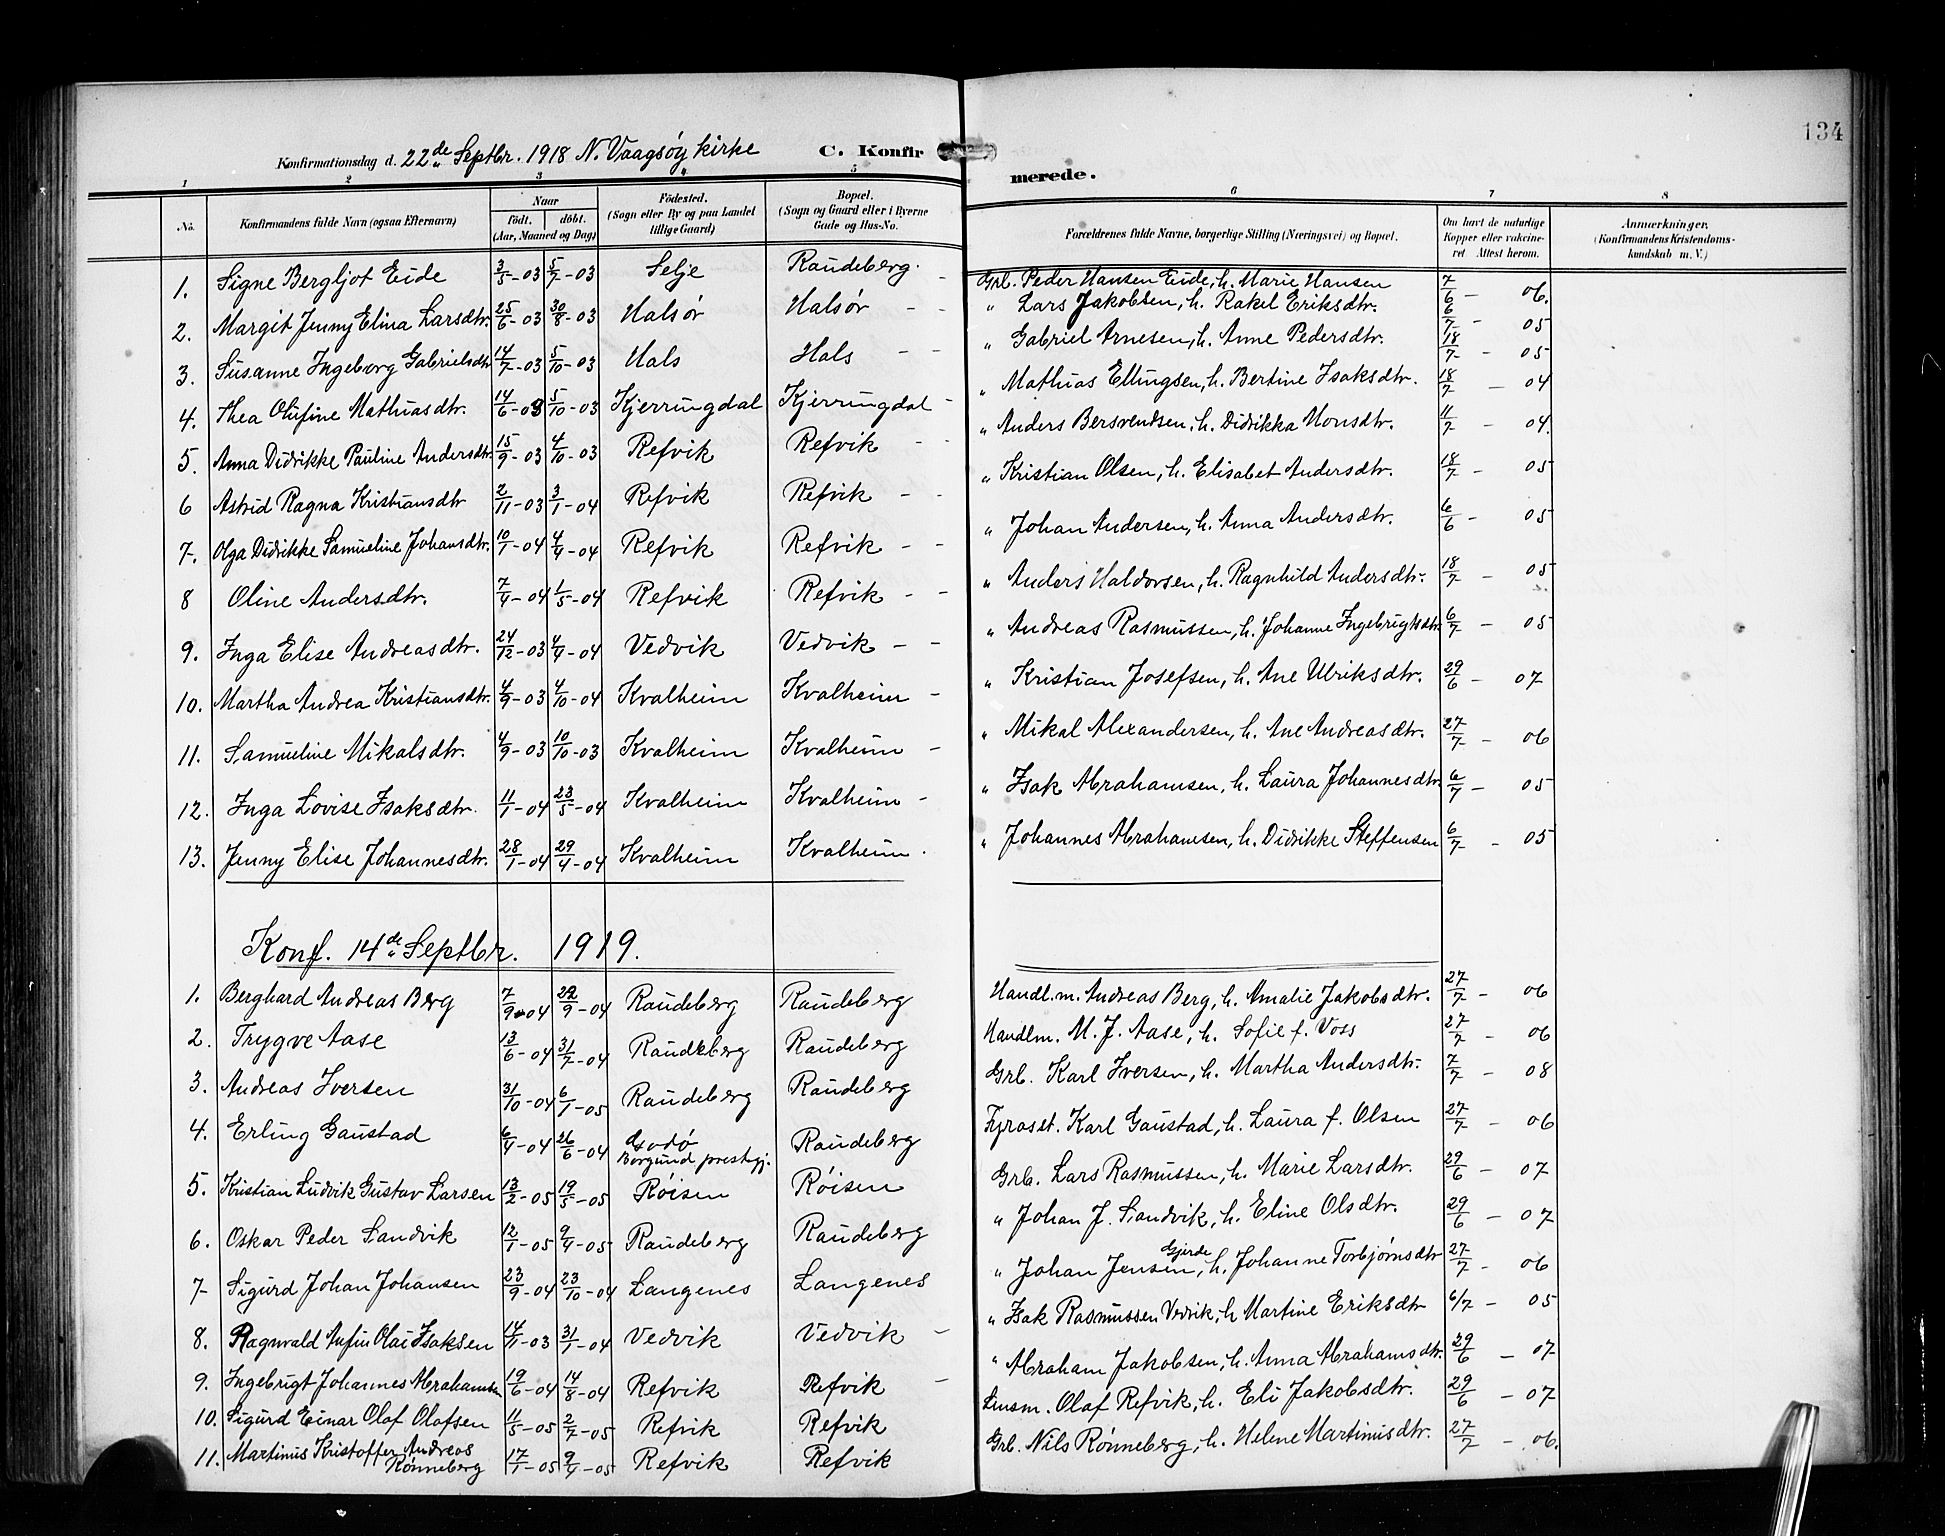 134
Konfirmationsdag d. 22de Septbr. 1918 N. Vaagsøy kirke C. Konfirmerede.
1 2 3 4 5 6 7 8
No. Konfirmandens fulde Navn (ogsaa Efternavn) Naar født. døbt. (Aar, Maaned og Dag) Födested. (Sogn eller By og paa Landet tillige Gaard) Bopæl. (Sogn og Gaard eller i Byerne Gade og Hus-No. Forældrenes fulde Navne, borgerlige Stilling (Næringsvei) og Bopæl. Om havt de naturlige Kopper eller vakcineret. Attest herom. Anmærkninger. (Konfirmandens Kristendomskundskab m. V.)
1. Signe Bergljot Eide 3/5-03 5/7-03 Selje Raudeberg. - Grb. Peder Hansen Eide, h. Marie Hansen 7/6 - 06.
2. Margit Jenny Elina Larsdtr. 25/6-03 30/8-03 Halsør Halsør - - " Lars Jakobsen, h. Rakel Eriksdtr. 6/7 - 05
3. Susanne Ingeborg Gabrielsdtr 14/7-03 5/10-03 Hals Hals - - " Gabriel Arnesen, h. Anne Pedersdtr. 18/7 - 05
4. Thea Olufine Mathiasdtr. 14/6-03 5/10-03 Kjerringdal Kjerringdal - " Mathias Ellingsen, h. Bertine Isaksdtr. 18/7 - 04
5. Anna Didrikke Pauline Andersdtr 15/9-03 4/10-03 Refvik Refvik - - " Anders Bersvendsen, h. Didrikka Monsdtr. 11/7 - 04.
6 Astrid Ragna Kristiansdtr 2/11-03 3/1-04 Refvik Refvik - - " Kristian Olsen, h. Elisabet Andersdtr. 18/7 - 05
7. Olga Didrikke Samueline Johansdtr. 10/1-04 4/4-04 Refvik Refvik - - " Johan Andersen, h. Anna Andersdtr. 6/6 - 05
8 Oline Andersdtr. 7/4-04 1/5-04 Refvik Refvik - - " Anders Haldorsen, h. Ragnhild Andersdtr. 18/7 - 05
9. Inga Elise Andreasdtr. 24/12-03 4/4-04 Vedvik Vedvik - - " Andreas Rasmussen, h. Johanne Ingebrigtsdtr. 6/7 - 05
10. Martha Andrea Kristiansdtr. 4/9-03 4/10-04 Kvalheim Kvalheim - " Kristian Josefsen, h. Ane Ulriksdtr. 29/6 - 07
11. Samueline Mikalsdtr. 4/9-03 10/10-03 Kvalheim Kvalheim - " Mikal Alexandersen, h. Ane Andreasdtr. 27/7 - 06
12. Inga Lovise Isaksdtr. 11/1-04 23/5-04 Kvalheim Kvalheim - " Isak Abrahamsen, h. Laura Johannesdtr. 6/7 - 05
13. Jenny Elise Johannesdtr. 28/1-04 29/4-04 Kvalheim Kvalheim. " Johannes Abrahamsen, h. Didrikke Steffensen 6/7 - 05
Konf. 14de Septbr. 1919.
1. Berghard Andreas Berg 7/9-04 29/9-04 Raudeberg Raudeberg Handl.m. Andreas Berg, h. Amalie Jakobsdtr. 27/7 - 06
2. Trygve Aase 13/6-04 31/7-04 Raudeberg Raudeberg Handlm. M. J. Aase, h. Sofie f. Voss 27/7 - 06
3. Andreas Iversen 31/10-04 6/1-05 Raudeberg Raudeberg Grb. Karl Iversen, h. Martha Andersdtr. 7/7 - 08
4. Erling Gaustad 6/4-04 26/6-04 Godø Borgund prestgj. Raudeberg Fyrast. Karl Gaustad, h. Laura f. Olsen 27/7 - 06
5. Kristian Ludvik Gustav Larsen 13/2-05 19/5-05 Røisen Røisen Grb. Lars Rasmussen, h. Marie Larsdtr. 29/6 - 07
6. Oskar Peder Sandvik 12/1-05 9/4-05 Raudeberg Raudeberg " Johan J. Sandvik, h. Eline Olsdtr. 29/6 - 07
7- Sigurd Johan Johansen 23/9-04 23/10-04 Langenes Langenes " Johan Jensen Gjerde, h. Johanne Torbjørnsdtr 27/7 - 06
8. Ragnvald Anfin Olai Isaksen 14/11-03 31/1-04 Vedvik Vedvik - " Isak Rasmussen Vedvik, h Martine Eriksdtr 6/7 - 05
9. Ingebrigt Johannes Abrahamsen 19/6-04 14/8-04 Refvik Refvik - " Abraham Jakobsen, h. Anna Abrahamsdtr. 29/6 - 07
10. Sigurd Einar Olaf Olafsen 11/5-05 2/7-05 Refvik Refvik Lensm. Olaf Refvik, h. Eli Jakobsdtr. 29/6 - 07
11. Martinus Kristoffer Andreas Rønneberg 17/1-05 9/4-05 Refvik Refvik Grb. Nils Rønneberg, h. Helene Martinusdtr. 27/7 - 06.